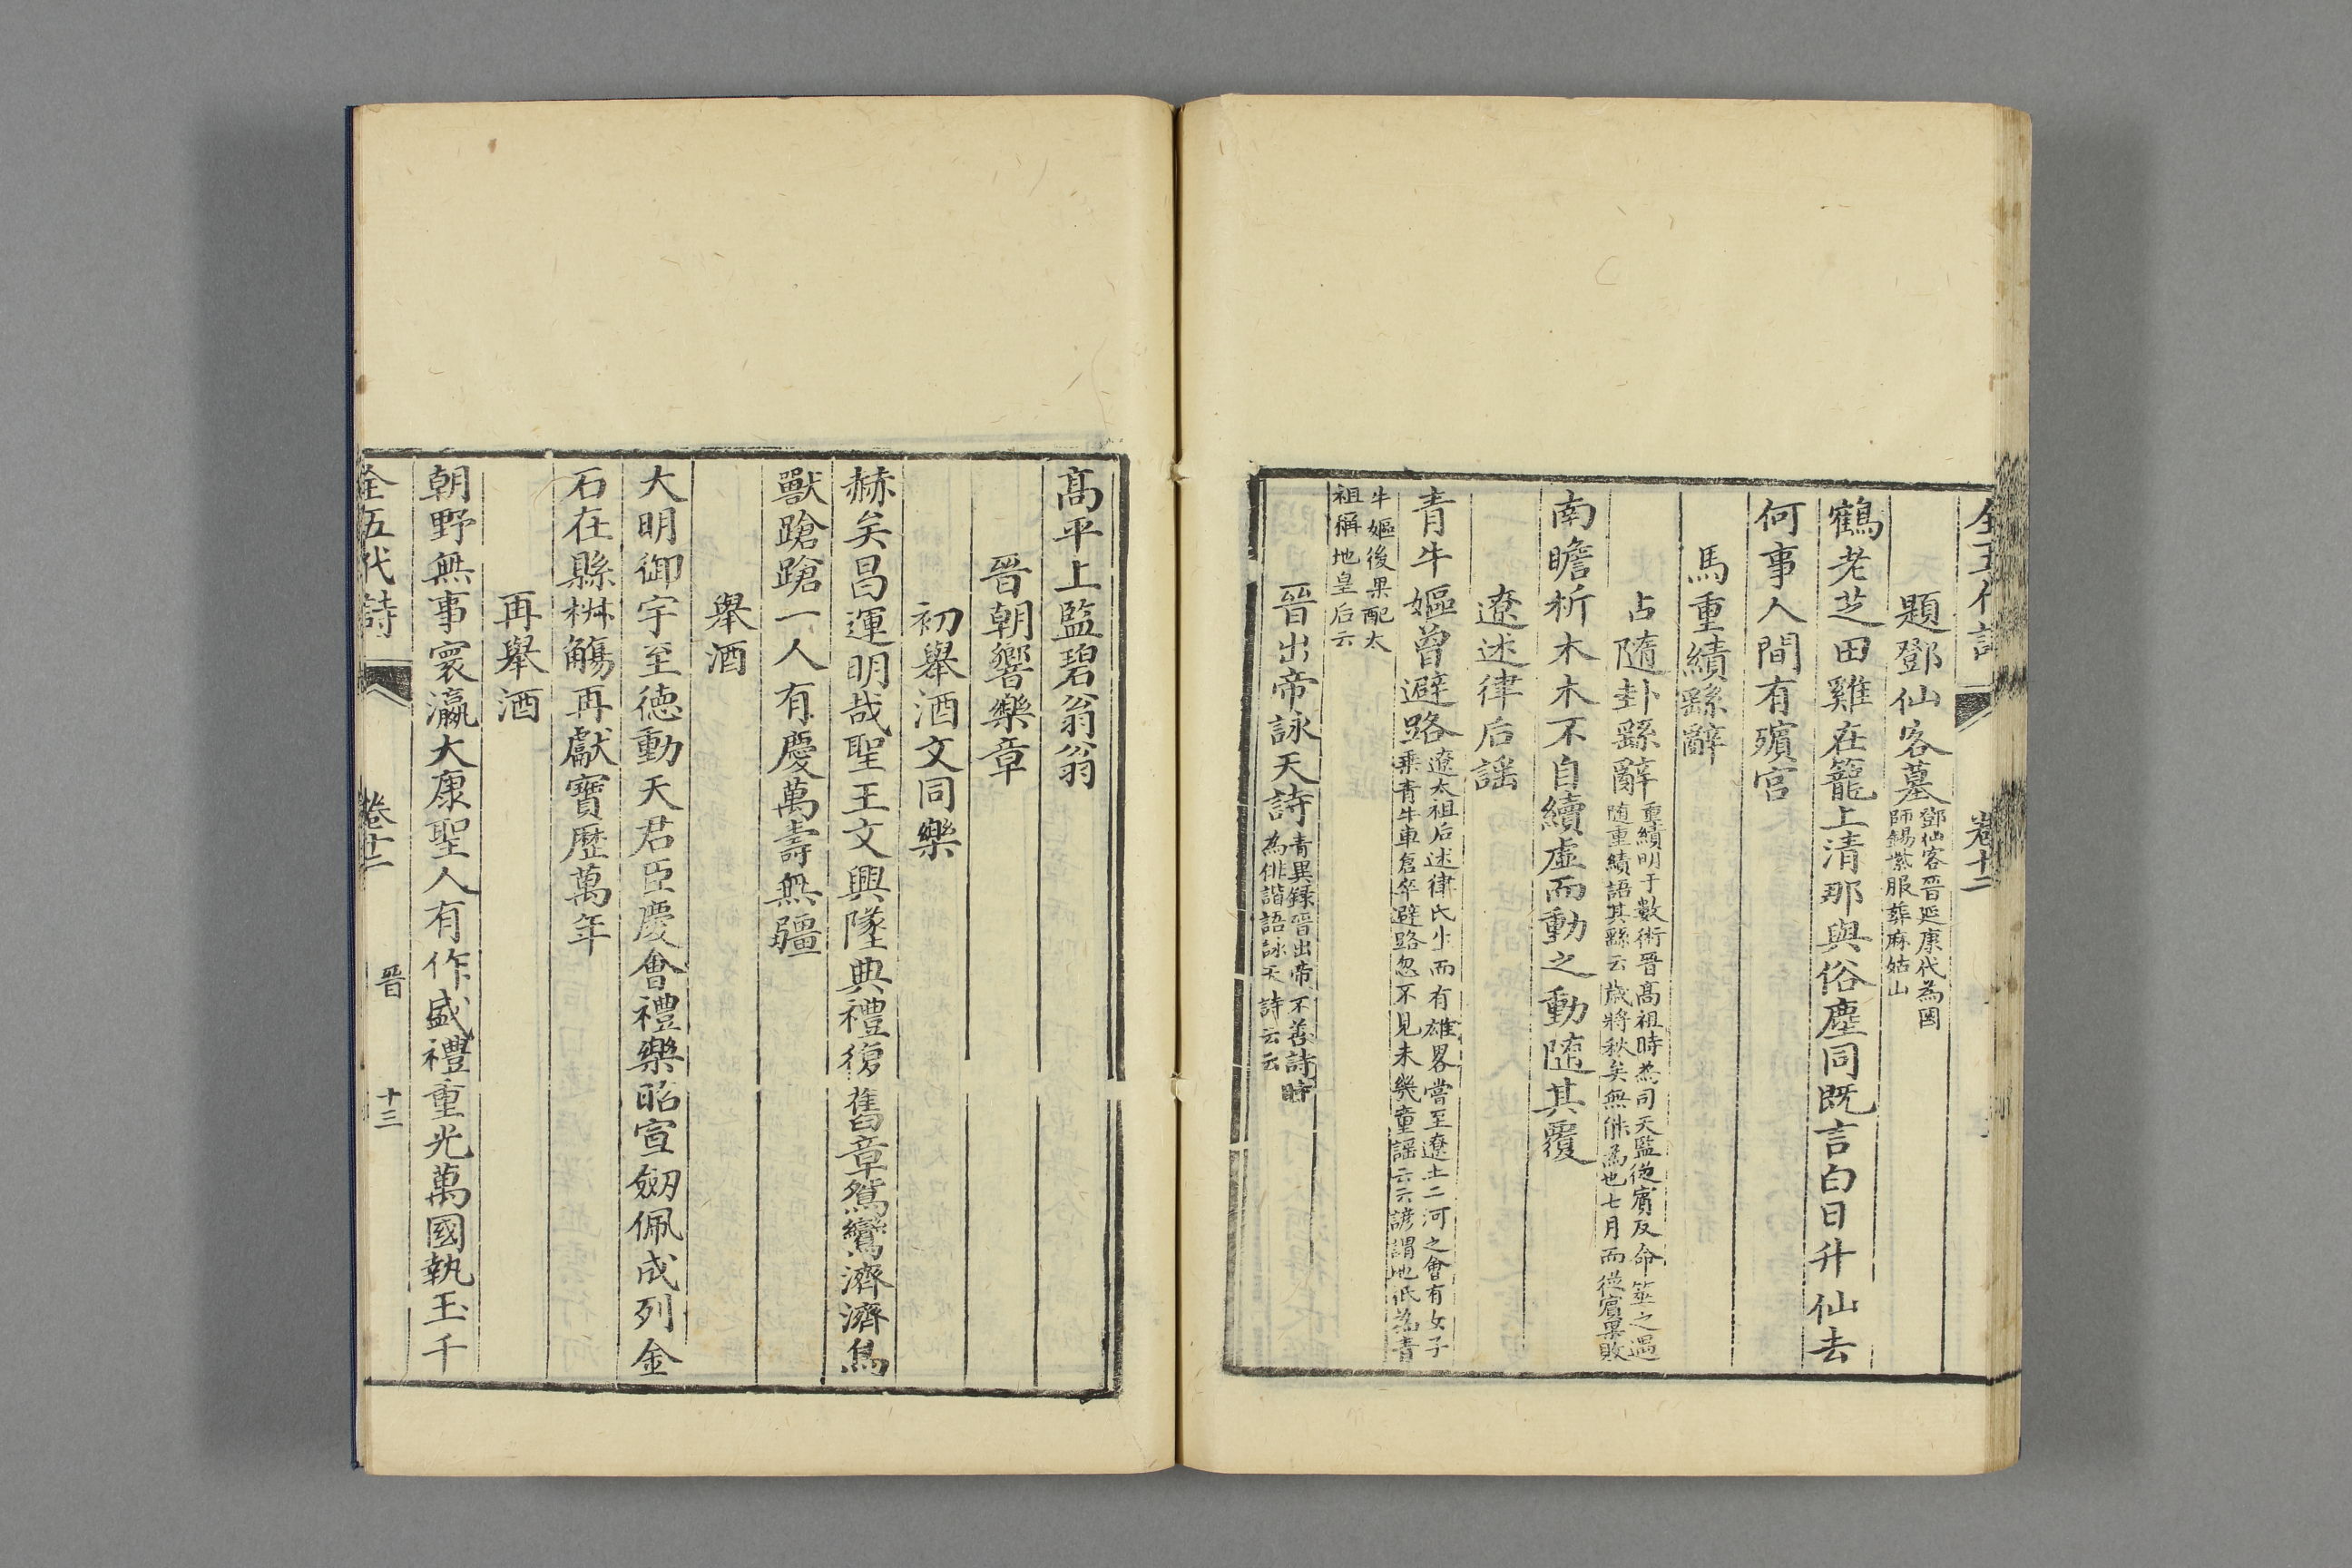 全五代詩 卷十二
題鄧仙客墓鄧仙客晋延康代為國師錫紫服葬麻姑山
鶴老芝田雞在籠上清那與俗塵同既言白日升仙去
何事人間有殯宮
馬重績繇辭
占隨卦繇辭重績明于數術晋髙祖時為司天監從賓反命筮之遇随重績語其繇云歳將秋矣無能為也七月而從賓果敗
南瞻析木木不自續虚而動之動随其覆
遼述律后謡
青牛嫗曾避路遼太祖后述律氏生而有雄畧嘗至遼土二河之會有女子乗青牛車倉卒避路忽不見未幾童謡云云諺謂地祇為青
牛嫗後果配太祖稱地皇后云
晉出帝詠天詩青異録晉出帝不善詩時為俳諧語詠天詩云云
髙平上監碧翁翁
晉朝饗樂章
初舉酒文同樂
赫矣昌運明哉聖王文興墜典禮復舊章鴛鸞濟濟鳥
獸蹌蹌一人有慶萬壽無疆
舉酒
大明御宇至徳動天君臣慶會禮樂昭宣劒佩成列金
石在縣椒觴再獻寶歷萬年
再舉酒
朝野無事寰瀛大康聖人有作盛禮重光萬國執玉千
全五代詩 卷十二 晉 十三